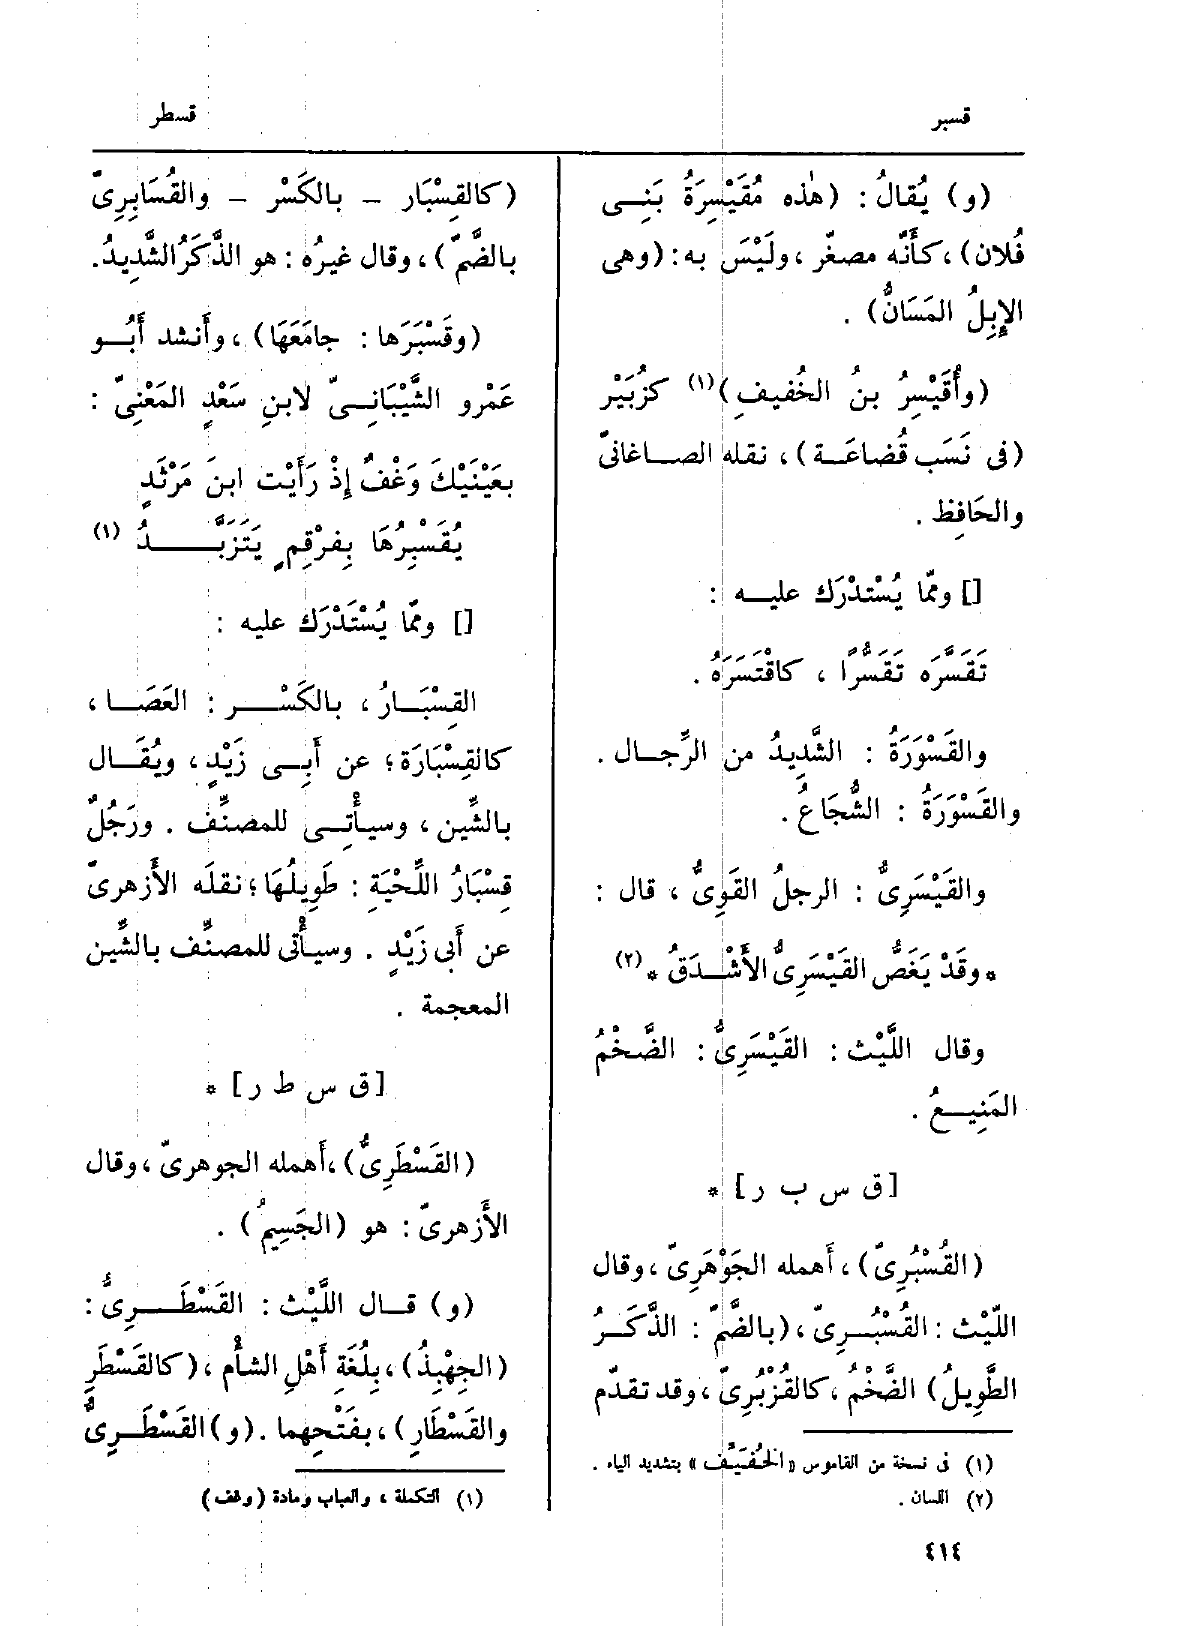 قسبر
قسطر
(و) يُقالُ : (هٰذه مُقَيْسِرَةُ بَنِـى
فُلان) ، كأَنَّه مصغّر ، ولَيْسَ به : (وهى
الإِبِلُ المَسَانُّ) .
(وأُقَيْسِرُ بنُ الخُفيفِ)(١) كزُبَيْر
(فى نَسَب قُضاعَـة) ، نقله الصـاغانىّ
والحَافِظ .
[] وممّا يُسْتدْرَك عليـه :
تَقَسَّرَه تَقَسُّرًا ، كاقْتَسَرَهُ .
والقَسْوَرَةُ : الشَّدِيدُ من الرِّجـال .
والقَسْوَرَةُ : الشُّجَاعُ .
والقَيْسَرِىُّ : الرجلُ القَوِىُّ ، قال :
* وقَدْ يَغَصُّ القَيْسَرِىُّ الأَشْـدَقُ *(٢)
وقال اللَّيْث : القَيْسَرِىُّ : الضَّخْمُ
المَنِيـعُ .
[ق س ب ر] *
(القُسْبُرِىّ) ، أَهمله الجَوْهَرِىّ ، وقال
اللّيْث : القُسْبُـرِىّ ، (بالضَّمّ : الذَّكَـرُ
الطَّوِيلُ) الضَّخْمُ ، كالقُزْبُرِىّ ، وقد تقدّم
(١) فى نسخة من القاموس «الخُفَيِّف» بتشديد الياء .
(٢) اللسان .
(كالقِسْبَار - بالكَسْر - والقُسَابِرِىّ
بالضَّمّ) ، وقال غيرُه : هو الذَّكَرُ الشَّدِيدُ.
(وقَسْبَرَها : جامَعَهَا) ، وأَنشد أَبُـو
عَمْرو الشَّيْبَانِـىّ لابنِ سَعْدٍ المَعْنِىّ :
بعَيْنَيْكَ وَغْفٌ إِذْ رَأَيْت ابنَ مَرْثَدٍ
يُقَسْبِرُهَا بِفرْقِمٍ يَتَزَبَّـدُ (١)
[] وممّا يُسْتَدْرَك عليه :
القِسْبَـارُ ، بالكَسْـر : العَصَـا ،
كالقِسْبَارَة ؛ عن أَبِـى زَيْدٍ ، ويُقَـال
بالشَّين ، وسيـأْتِـى للمصنِّف . ورَجُلٌ
قِسْبَارُ اللِّحْيَةِ : طَوِيلُهَا ؛ نقلَه الأَزهرىّ
عن أَبى زَيْدٍ . وسيـأْتى للمصنِّف بالشَّين
المعجمة .
[ق س ط ر] *
(القَسْطَرِىُّ) ، أَهمله الجوهرىّ ، وقال
الأَزهرىّ : هو (الجَسِيمُ) .
(و) قـال اللَّيْث : القَسْطَـرِىُّ :
(الجِهْبِذُ) ، بِلُغَةِ أَهْلِ الشأْم ، (كالقَسْطَرِ
والقَسْطَارِ) ، بفَتْحِهما . (و) القَسْطَـرِىُّ
(١) التكملة ، والعباب ومادة (وغف)
٤١٤